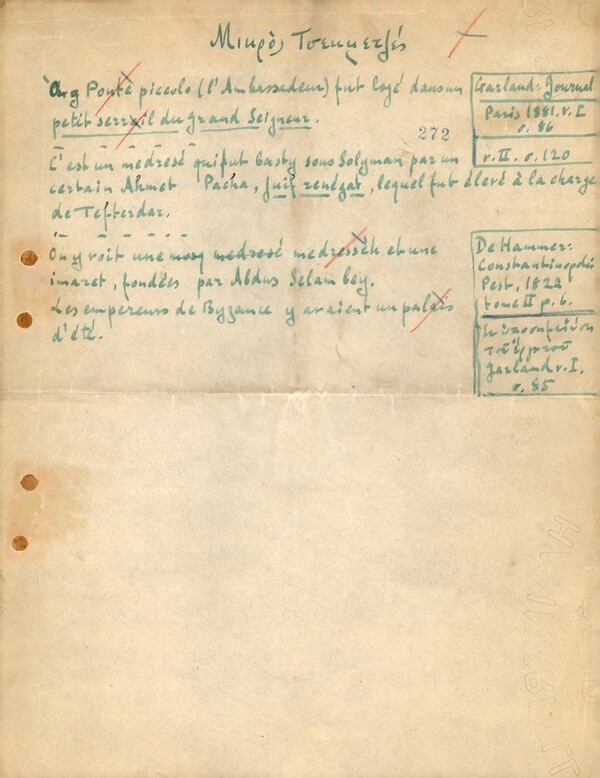 Μικρὸς Τσεκμετζές
Ponte piccolo (l'Ambassadeur) fut logé dans un
petit serrail du Grand Seigneur.
272
C'est un medresé qui fut basty sous Solyman par un
certain Ahmet Pacha, juif renégat, lequel fut élevé à la charge
de Tefterdar.
On y voit une mosq medresé medressèh et une
imaret, fondées par Abdus Selam bey.
Les empereurs de Byzance y avaient un palais
d'été.
Garland: Journal
Paris 1881. v. I
σ. 86
v. II. σ. 120
De Hammer:
Constantinopolis
Pest, 1822
tome II p. 6.
τοῦ
Garland v. I.
σ. 85